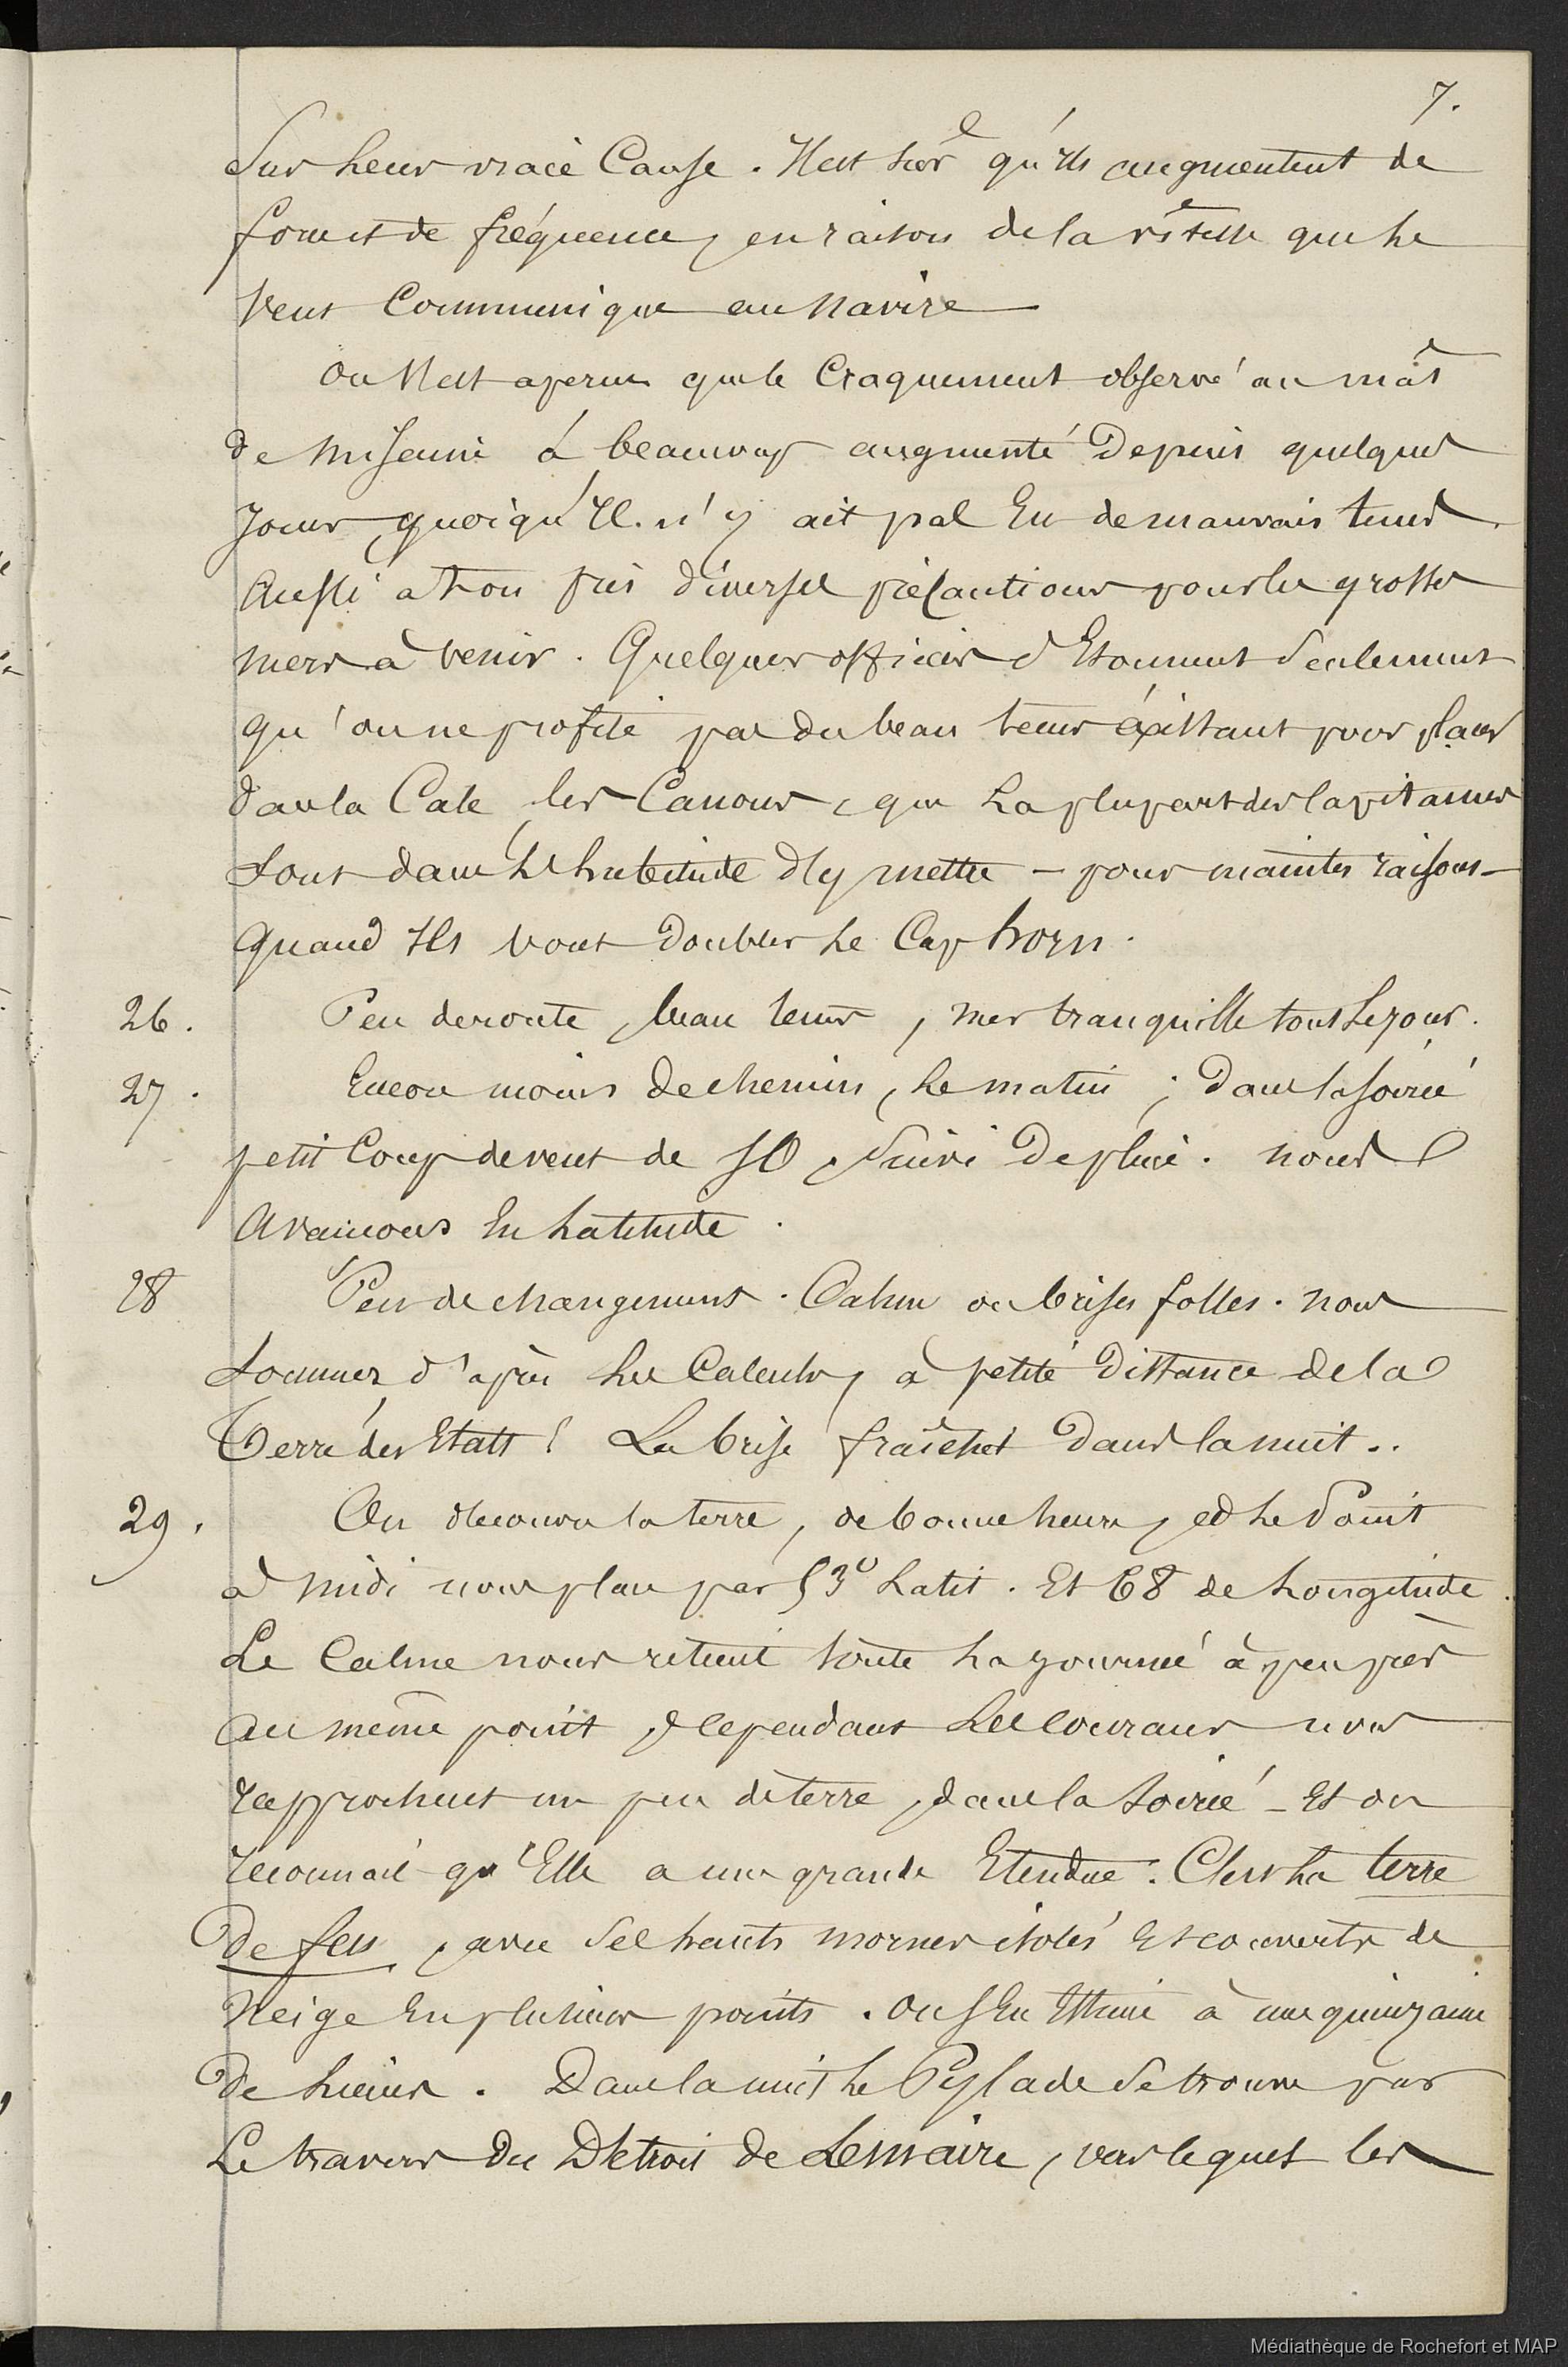 7.
Sur leur vraie Cause. Il est sûr qu'ils augmentent de
force et de fréquence, en raison de la vitesse que le
vent Communique au navire
On s'est aperçu que le Craquement observé au mât
de misaine a beaucoup augmenté Depuis quelques
jours, quoiqu'Il n'y ait pas Eu de mauvais tems.
Aussi a t'on pris diverses précautions pour les grosses
mers à venir. Quelques officiers s'Etonnent Seulement
qu'on ne profite pas du beau tems éxistant pour placer
dans la Cale, les Canons, que la plupart des Capitaines
sont dans l'habitude d'y mettre – pour maintes raisons –
quand Ils vont doubler le Cap horn.
26. Peu de route, beau tems, mer tranquille tout le jour.
27. Encore moins de chemin, le matin ; Dans la soirée
petit Coup de vent de SO, Suivi De pluie. nous
avançons En latitude.
28 Peu de changement. Calme ou brises folles. nous
sommes d'après les Calculs, à petite distance de la
Terre des Etats ! La brise fraîchit Dans la nuit..
29. On découvre la terre, de bonne heure, et le Point
à midi nous place par 53° latit. Et 68 de longitude.
Le Calme nous retient toute la journée à peu près
au même point, cependant les courans nous
rapprochent un peu de terre, dans la soirée – Et on
reconnait qu'Elle a une grande Etendue. C'est la terre
de feu, avec Ses hauts mornes isolés Et couverts de
Neige En plusieurs points. On s'En Estime à une quinzaine
De lieues. Dans la nuit le Pylade se trouve par
Le travers du Détroit de Lemaire, vers lequel les
Médiathèque de Rochefort et MAP